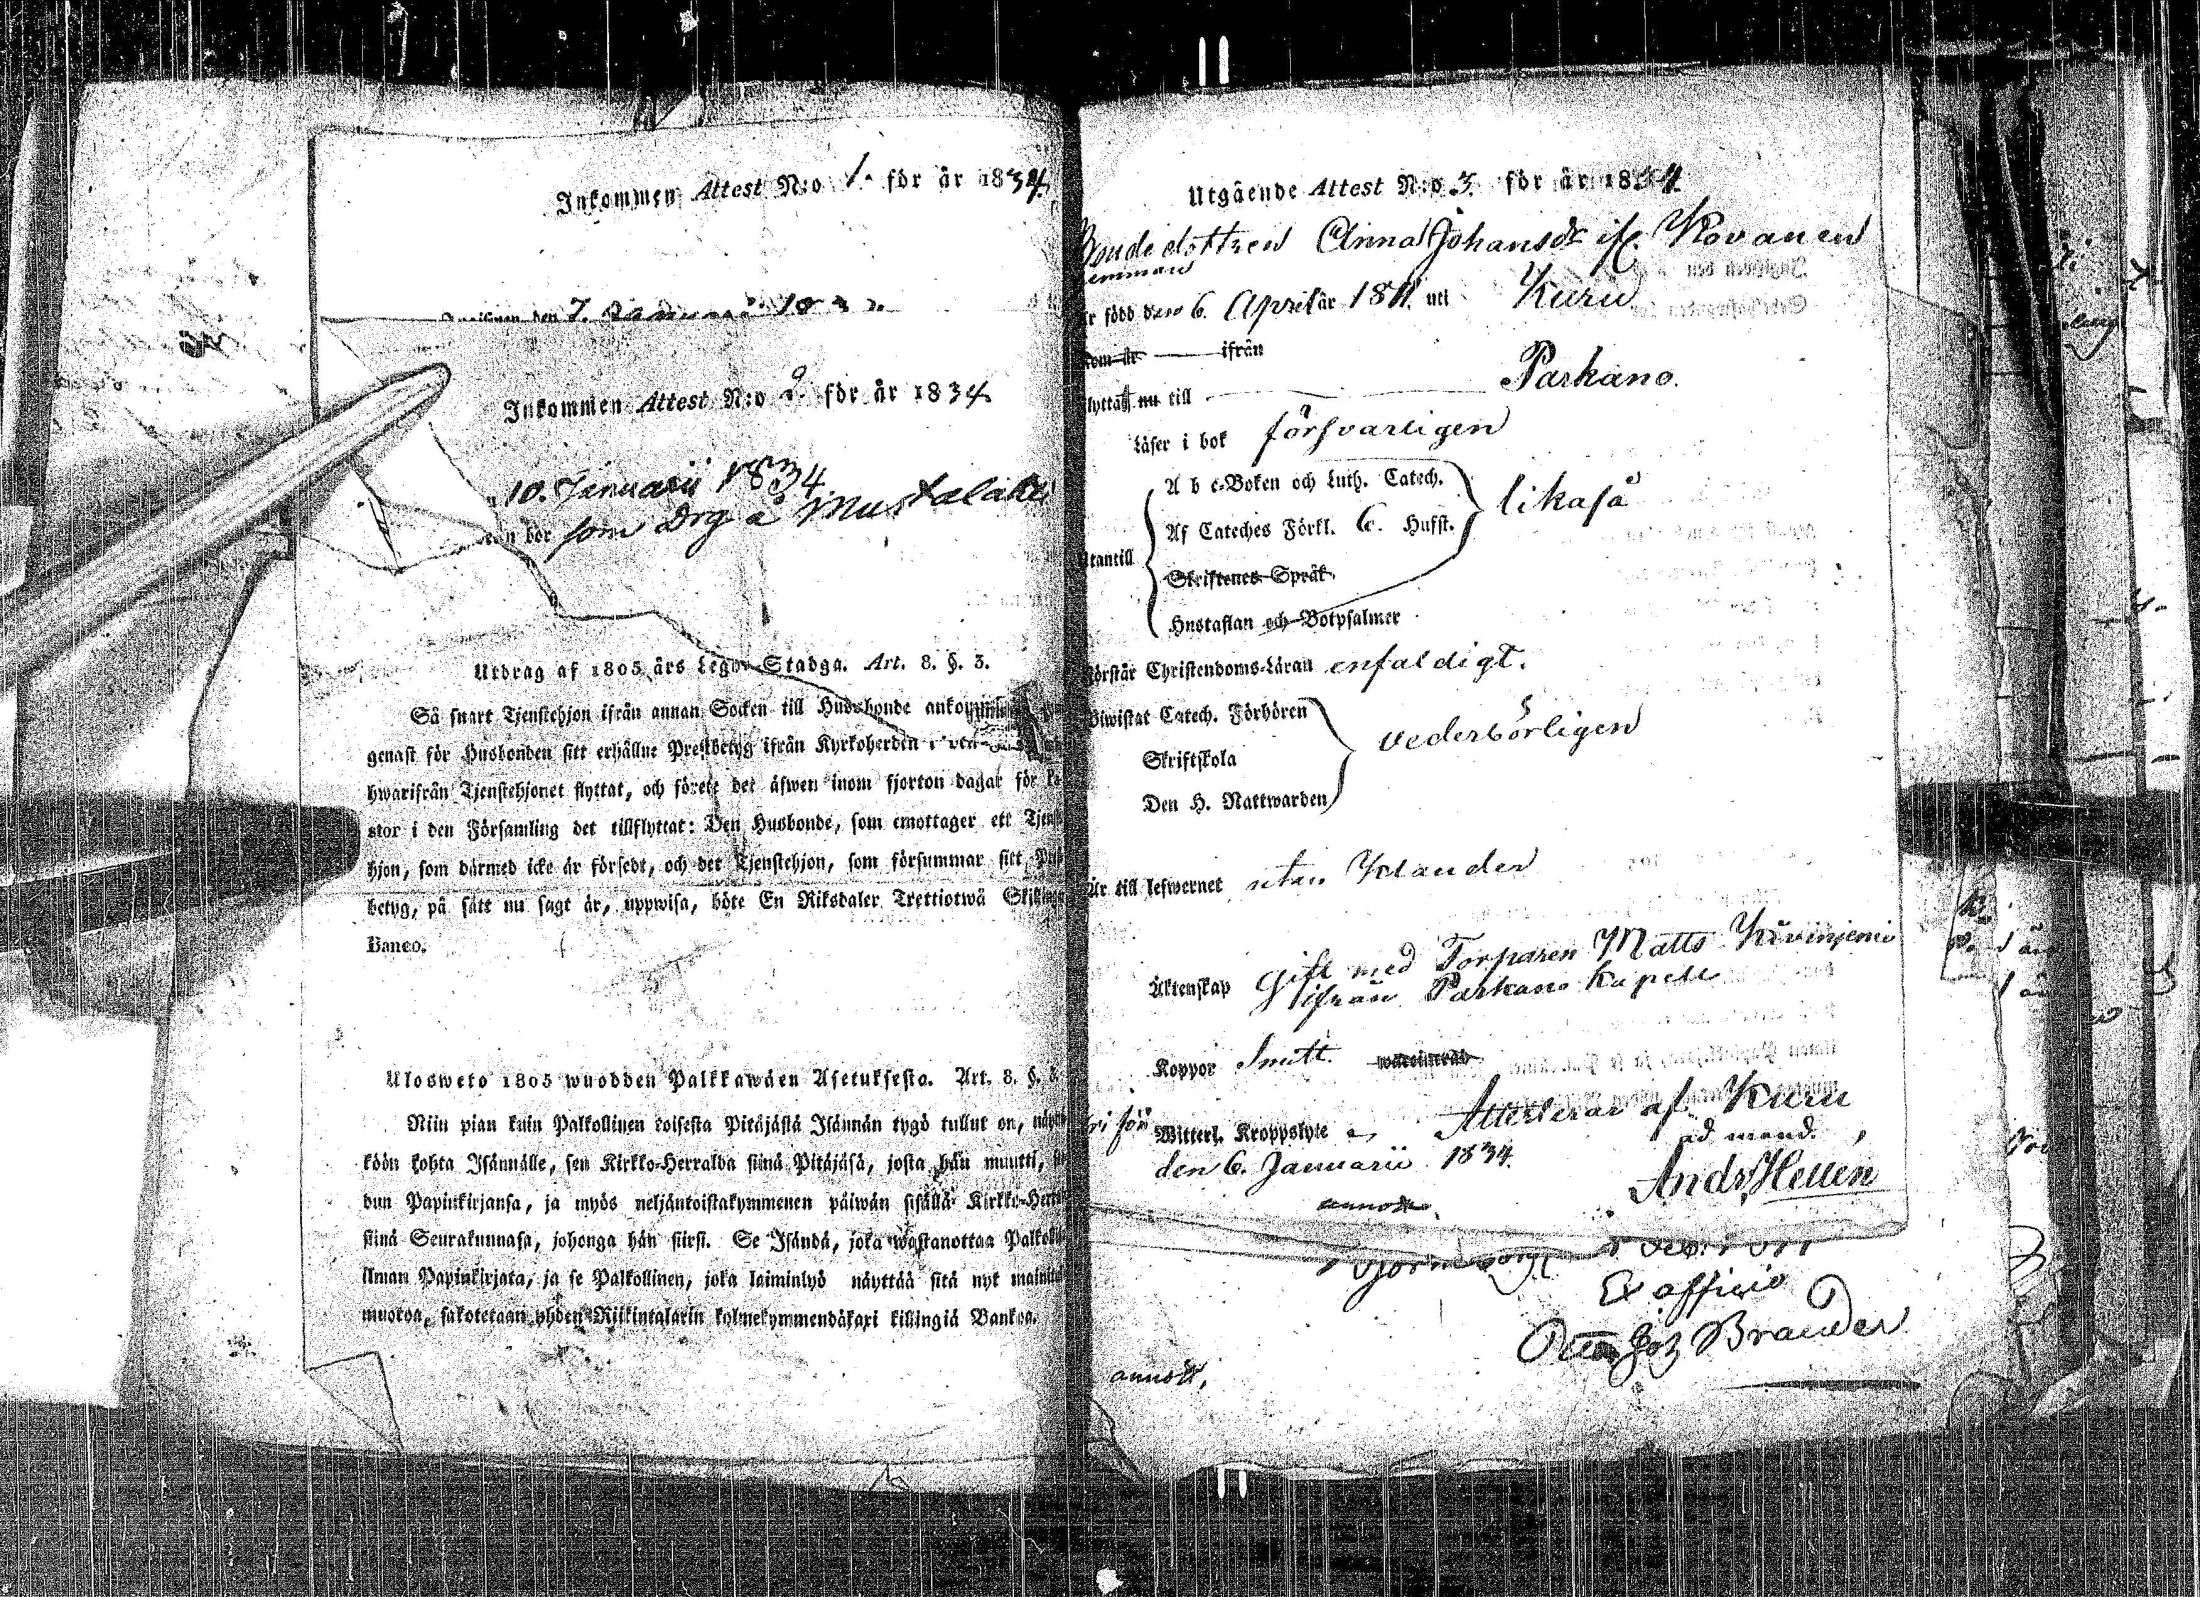 Inkommen Attest N:o 1. för år 1834.
7.
Inkommen Attest N:o 2. för år 1834
10. Januarii 1834
bör som Drg å
Utdrag af 1805 års Lego-Stadga. Art. 8. §. 3.
Så snart Tjenstehjon ifrån annan Socken till Husbonde
genast för Husbonden sitt erhållne Prestbetyg ifrån Kyrkoherden
hwarifrån Tjenstehjonet flyttat, och förete det äfwen inom fjorton dagar för
stor i den Församling det tillflyttat: Den Husbonde, som emottager ett
hjon, som därmed icke är försedt, och det Tjenstehjon, som försummar sitt
betyg, på sätt nu sagt är, uppwisa, böte En Riksdaler Trettiotwå
Banco.
Ulosweto 1805 wuodden Palkkawäen Asetuksesta. Art. 8. §. 3.
Niin pian kuin Palkollinen toisesta Pitäjästä Isännän tygö tullut on,
köön kohta Isännälle, sen Kirkko-Herralda siinä Pitäjäsä, josta hän muutti,
dun Papinkirjansa, ja myös neljäntoistakymmenen päiwän sisällä
siinä Seurakunnasa, johonga hän siirsi. Se Isändä, joka wastanottaa
ilman Papinkirjata, ja se Palkollinen, joka laiminlyö näyttää sitä nyt
muotoa, sakotetaan yhden Riikintalarin kolmekymmendäkaxi killingiä Bankoa.
Utgående Attest N:o 3. för år 1834
Bondedottren Anna Johansdr if. Kovanen
är född den 6. April år 1811. uti Kuru
kom år ifrån
flyttat nu till Parkano.
Läser i bok försvarligen
A b c-Boken och Luth. Catech.
Af Cateches Förkl. 6. Hufst. likaså
Utantill
Skriftenes Språk
Hustaflan och Botpsalmer
Förstår Christendoms-Läran enfaldigt.
Biwistat Catech. Förhören
Skriftskola vederbörligen
Den H. Nattwarden
Är till lefwernet utan Klander
Äktenskap Gift med Torparen Matts
ifrån Parkano Kapell
Koppor
Witterl. Kroppslyte Attesterar af Kuru
den 6. Januarii 1834. ad mand.
Ands Hellén
Ex officio
Brander